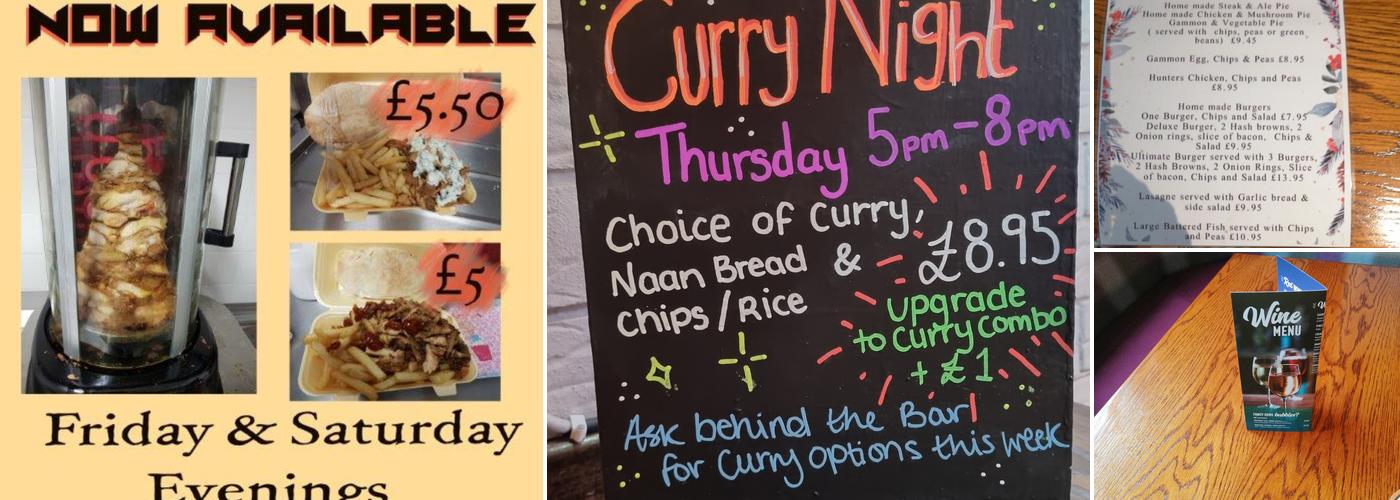 NOW AVAILABLE
£5.50
£5
Friday & Saturday
Evenings
Curry Night
Thursday 5pm-8pm
Choice of Curry,
Naan Bread &
Chips/Rice
£8.95
upgrade
to Curry Combo
+ £1
Ask behind the Bar
for Curry options this week
Home made Steak & Ale Pie
Home made Chicken & Mushroom Pie
Gammon & Vegetable Pie
( served with chips, peas or green
beans) £9.45
Gammon Egg, Chips & Peas £8.95
Hunters Chicken, Chips and Peas
£8.95
Home made Burgers
One Burger, Chips and Salad £7.95
Deluxe Burger, 2 Hash browns, 2
Onion rings, slice of bacon, Chips &
Salad £9.95
Ultimate Burger served with 3 Burgers,
2 Hash Browns, 2 Onion Rings, Slice
of bacon, Chips and Salad £13.95
Lasagne served with Garlic bread &
side salad £9.95
Large Battered Fish served with Chips
and Peas £10.95
Wine
MENU
FANCY SOME bubbles?